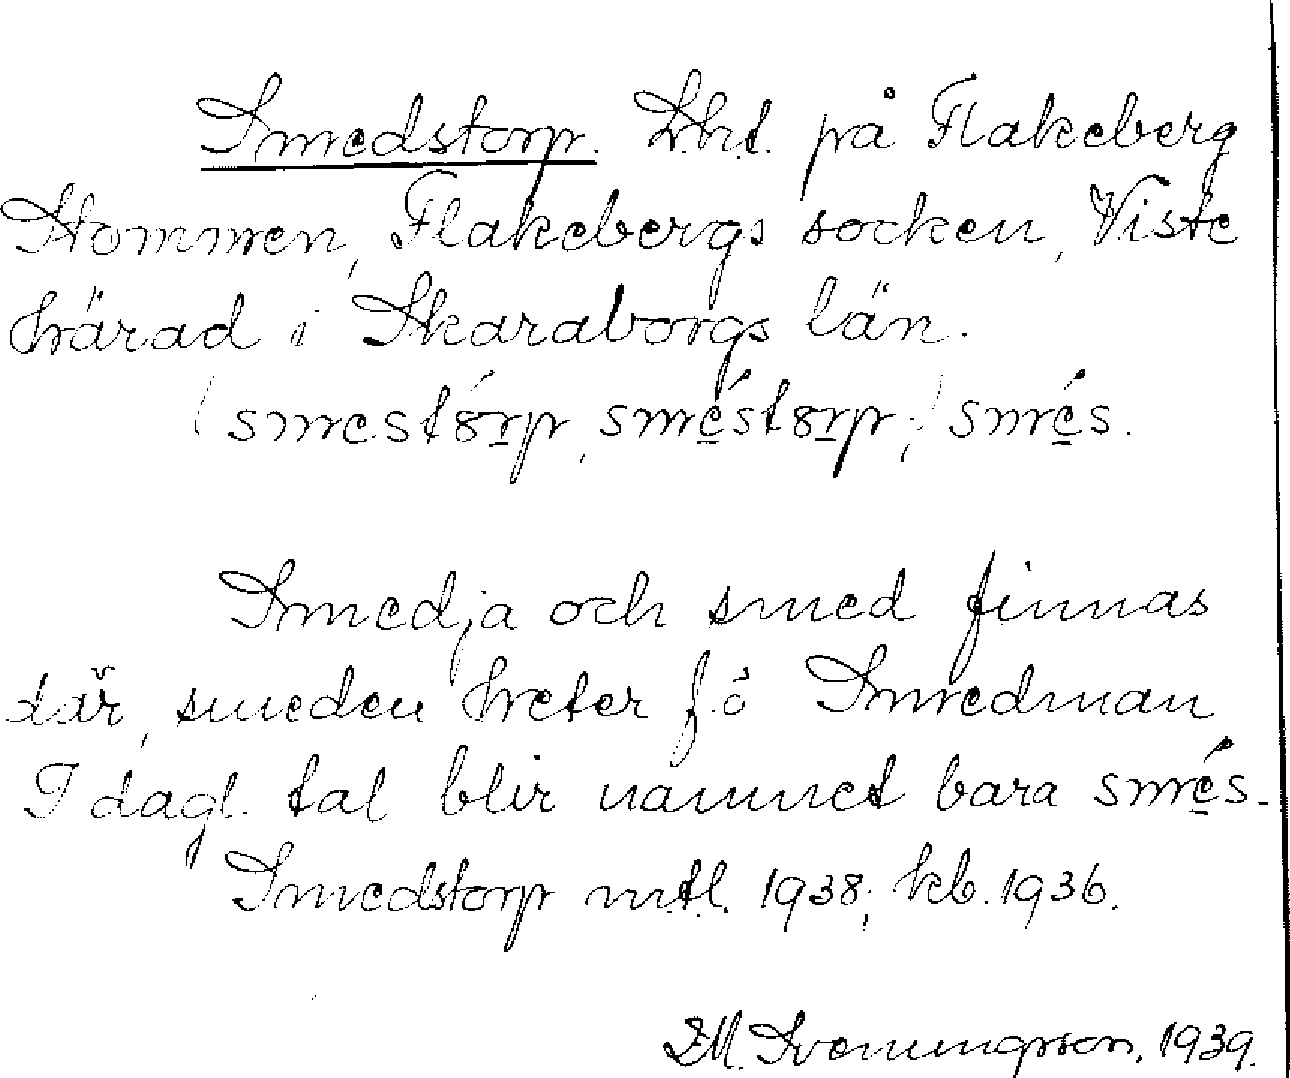 Smedstorp. Lht. på Flakeberg
Stommen, Flakebergs socken, Viste
härad i Skaraborgs län.
(smestórp, sméstorp;) smés.
Smedja och smed finnas
där, smeden heter f.ö. Smedman
I dagl. tal blir namnet bara smés.
Smedstorp mtl. 1938; kb. 1936.
Svenungsson, 1939.